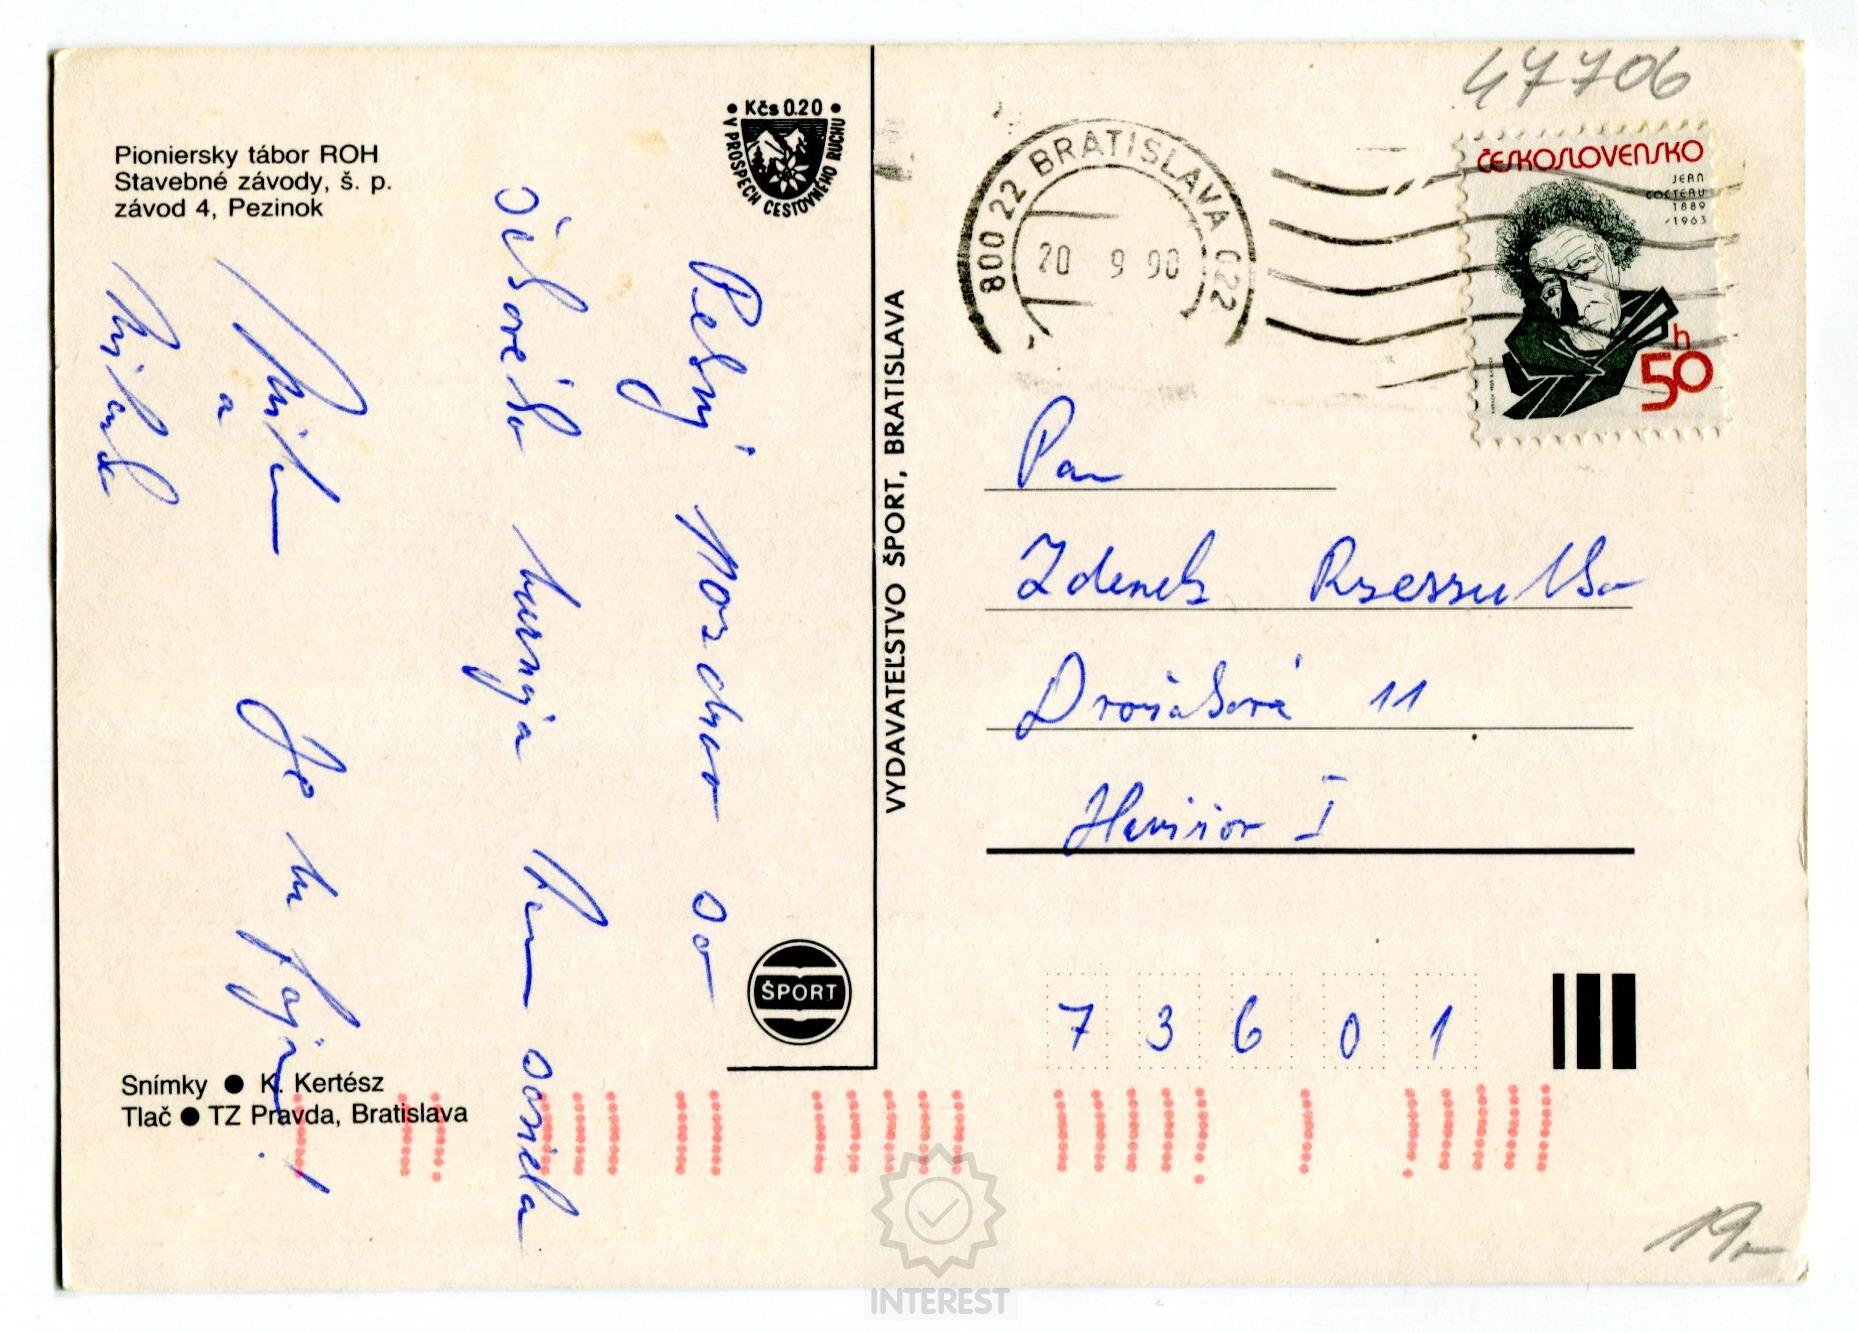 Pioniersky tábor ROH
Stavebné závody, š. p.
závod 4, Pezinok
• Kčs 0.20 •
V PROSPECH CESTOVNÉHO RUCHU
Pekný pozdrav so
šiškového turnaja Pen
Je tu fajn!
a
Snímky ● K. Kertész
Tlač ● TZ Pravda, Bratislava
ŠPORT
VYDAVATEĽSTVO ŠPORT, BRATISLAVA
800 22 BRATISLAVA 022
20 9 90
47706
ČESKOSLOVENSKO
JEAN
COCTEAU
1889
-1963
50 h
Pan
Zdenek
Dvořákova 11
Havířov I
7 3 6 0 1
19,-
INTEREST